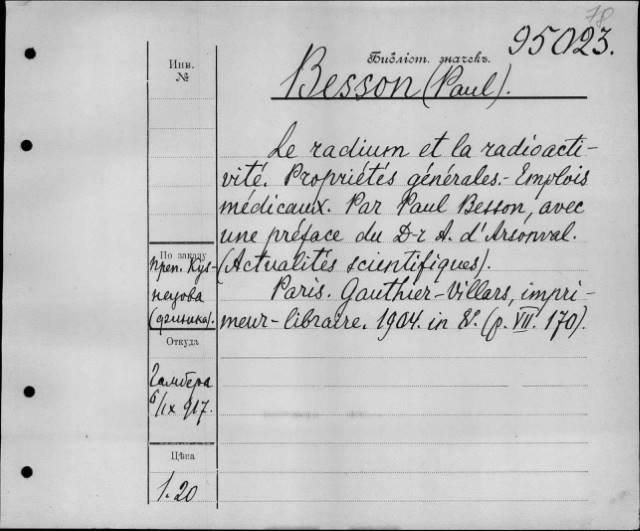 78
95023.
Библіот. значекъ.
Besson (Paul).
Инв.
№
Le radium et la radioacti-
vité. Propriétés générales.- Emplois
médicaux. Par Paul Besson, avec
une préface du Dr A. d'Arsonval.
(Actualités scientifiques).
Paris. Gauthier-Villars, impri-
meur-libraire. 1904. in 8°. (p. VII. 170).
По заказу
преп. Куз-
нецова
(физика).
Откуда
Гамбера
6/IX 917.
Цѣна
1.20